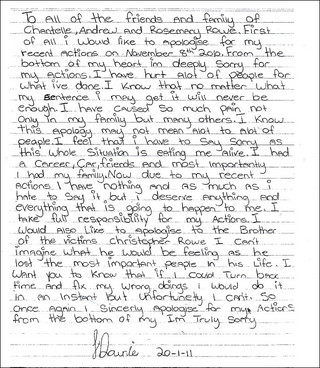 To All of the friends and family of
Chantelle, Andrew and Rosemary Rowe. First
of all i Would like to Apologise for my
recent Actions on November 8th 2010. From the
bottom of my heart im deeply Sorry for
my actions. I have hurt alot of people for
what ive done. I Know that no matter what
my Sentence i may get it will never be
enough. I have caused So much pain not
only in my family but many others. I Know
this apology may not mean alot to alot of
people. I feel that i have to Say Sorry as
this whole Situation is eating me Alive. I had
a Career, Car, friends and most importantly
I had my family. Now due to my recent
Actions I have nothing and as much as i
hate to Say it but i deserve anything and
everything that is going to happen to me. I
take full responsibility for my Actions. I
Would also Like to Apologise to the Brother
of the victims christopher Rowe I Can't
imagine what he would be feeling as he
lost the most important people in his Life. I
Want you to Know that if I Could Turn back
time and fix my wrong doings I would do it
in an Instant but Unfortunetly I Cant. So
Once Again I Sincerly Apologise for my Actions
from the bottom of my Im Truly Sorry
20-1-11